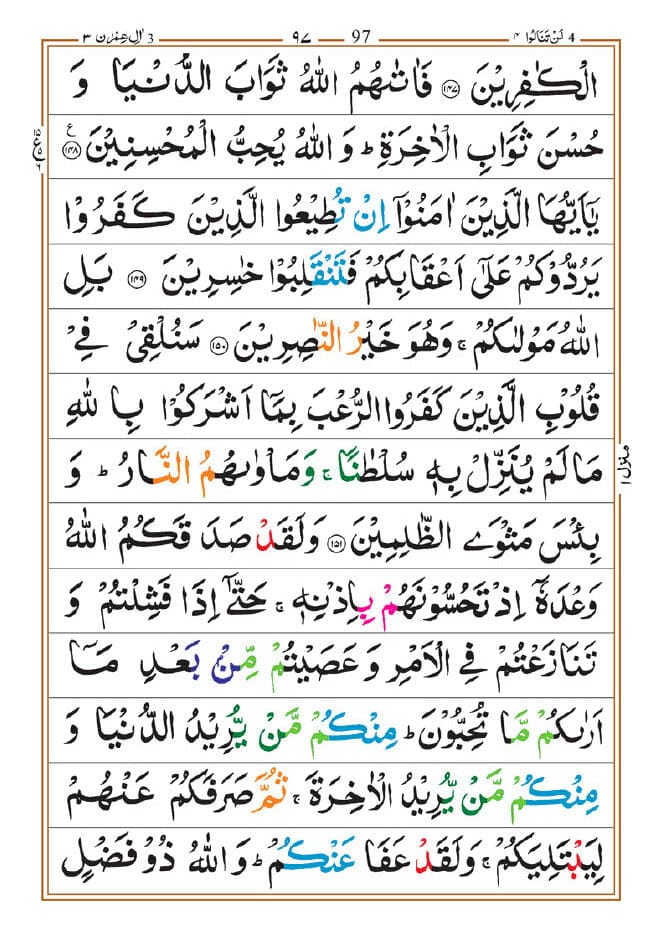 اٰلِ عِمْرٰن ٣ 3 ٩٧ 97 لَنْ تَنَالُوا ٤ 4
الْكٰفِرِيْنَ ۝١٤٧ فَاٰتٰىهُمُ اللّٰهُ ثَوَابَ الدُّنْيَا وَ
حُسْنَ ثَوَابِ الْاٰخِرَةِ ؕ وَ اللّٰهُ يُحِبُّ الْمُحْسِنِيْنَ ۝١٤٨ ع
يٰۤاَيُّهَا الَّذِيْنَ اٰمَنُوْۤا اِنْ تُطِيْعُوا الَّذِيْنَ كَفَرُوْا
يَرُدُّوْكُمْ عَلٰۤى اَعْقَابِكُمْ فَتَنْقَلِبُوْا خٰسِرِيْنَ ۝١٤٩ بَلِ
اللّٰهُ مَوْلٰىكُمْ ۚ وَهُوَ خَيْرُ النّٰصِرِيْنَ ۝١٥٠ سَنُلْقِيْ فِيْ
قُلُوْبِ الَّذِيْنَ كَفَرُوا الرُّعْبَ بِمَاۤ اَشْرَكُوْا بِاللّٰهِ
مَا لَمْ يُنَزِّلْ بِهٖ سُلْطٰنًا ۚ وَمَاْوٰىهُمُ النَّارُ ؕ وَ
بِئْسَ مَثْوَى الظّٰلِمِيْنَ ۝١٥١ وَلَقَدْ صَدَقَكُمُ اللّٰهُ
وَعْدَهٗۤ اِذْ تَحُسُّوْنَهُمْ بِاِذْنِهٖ ۚ حَتّٰۤى اِذَا فَشِلْتُمْ وَ
تَنَازَعْتُمْ فِي الْاَمْرِ وَ عَصَيْتُمْ مِّنْ بَعْدِ مَاۤ
اَرٰىكُمْ مَّا تُحِبُّوْنَ ؕ مِنْكُمْ مَّنْ يُّرِيْدُ الدُّنْيَا وَ
مِنْكُمْ مَّنْ يُّرِيْدُ الْاٰخِرَةَ ۚ ثُمَّ صَرَفَكُمْ عَنْهُمْ
لِيَبْتَلِيَكُمْ ۚ وَلَقَدْ عَفَا عَنْكُمْ ؕ وَ اللّٰهُ ذُوْ فَضْلٍ
منزل ١